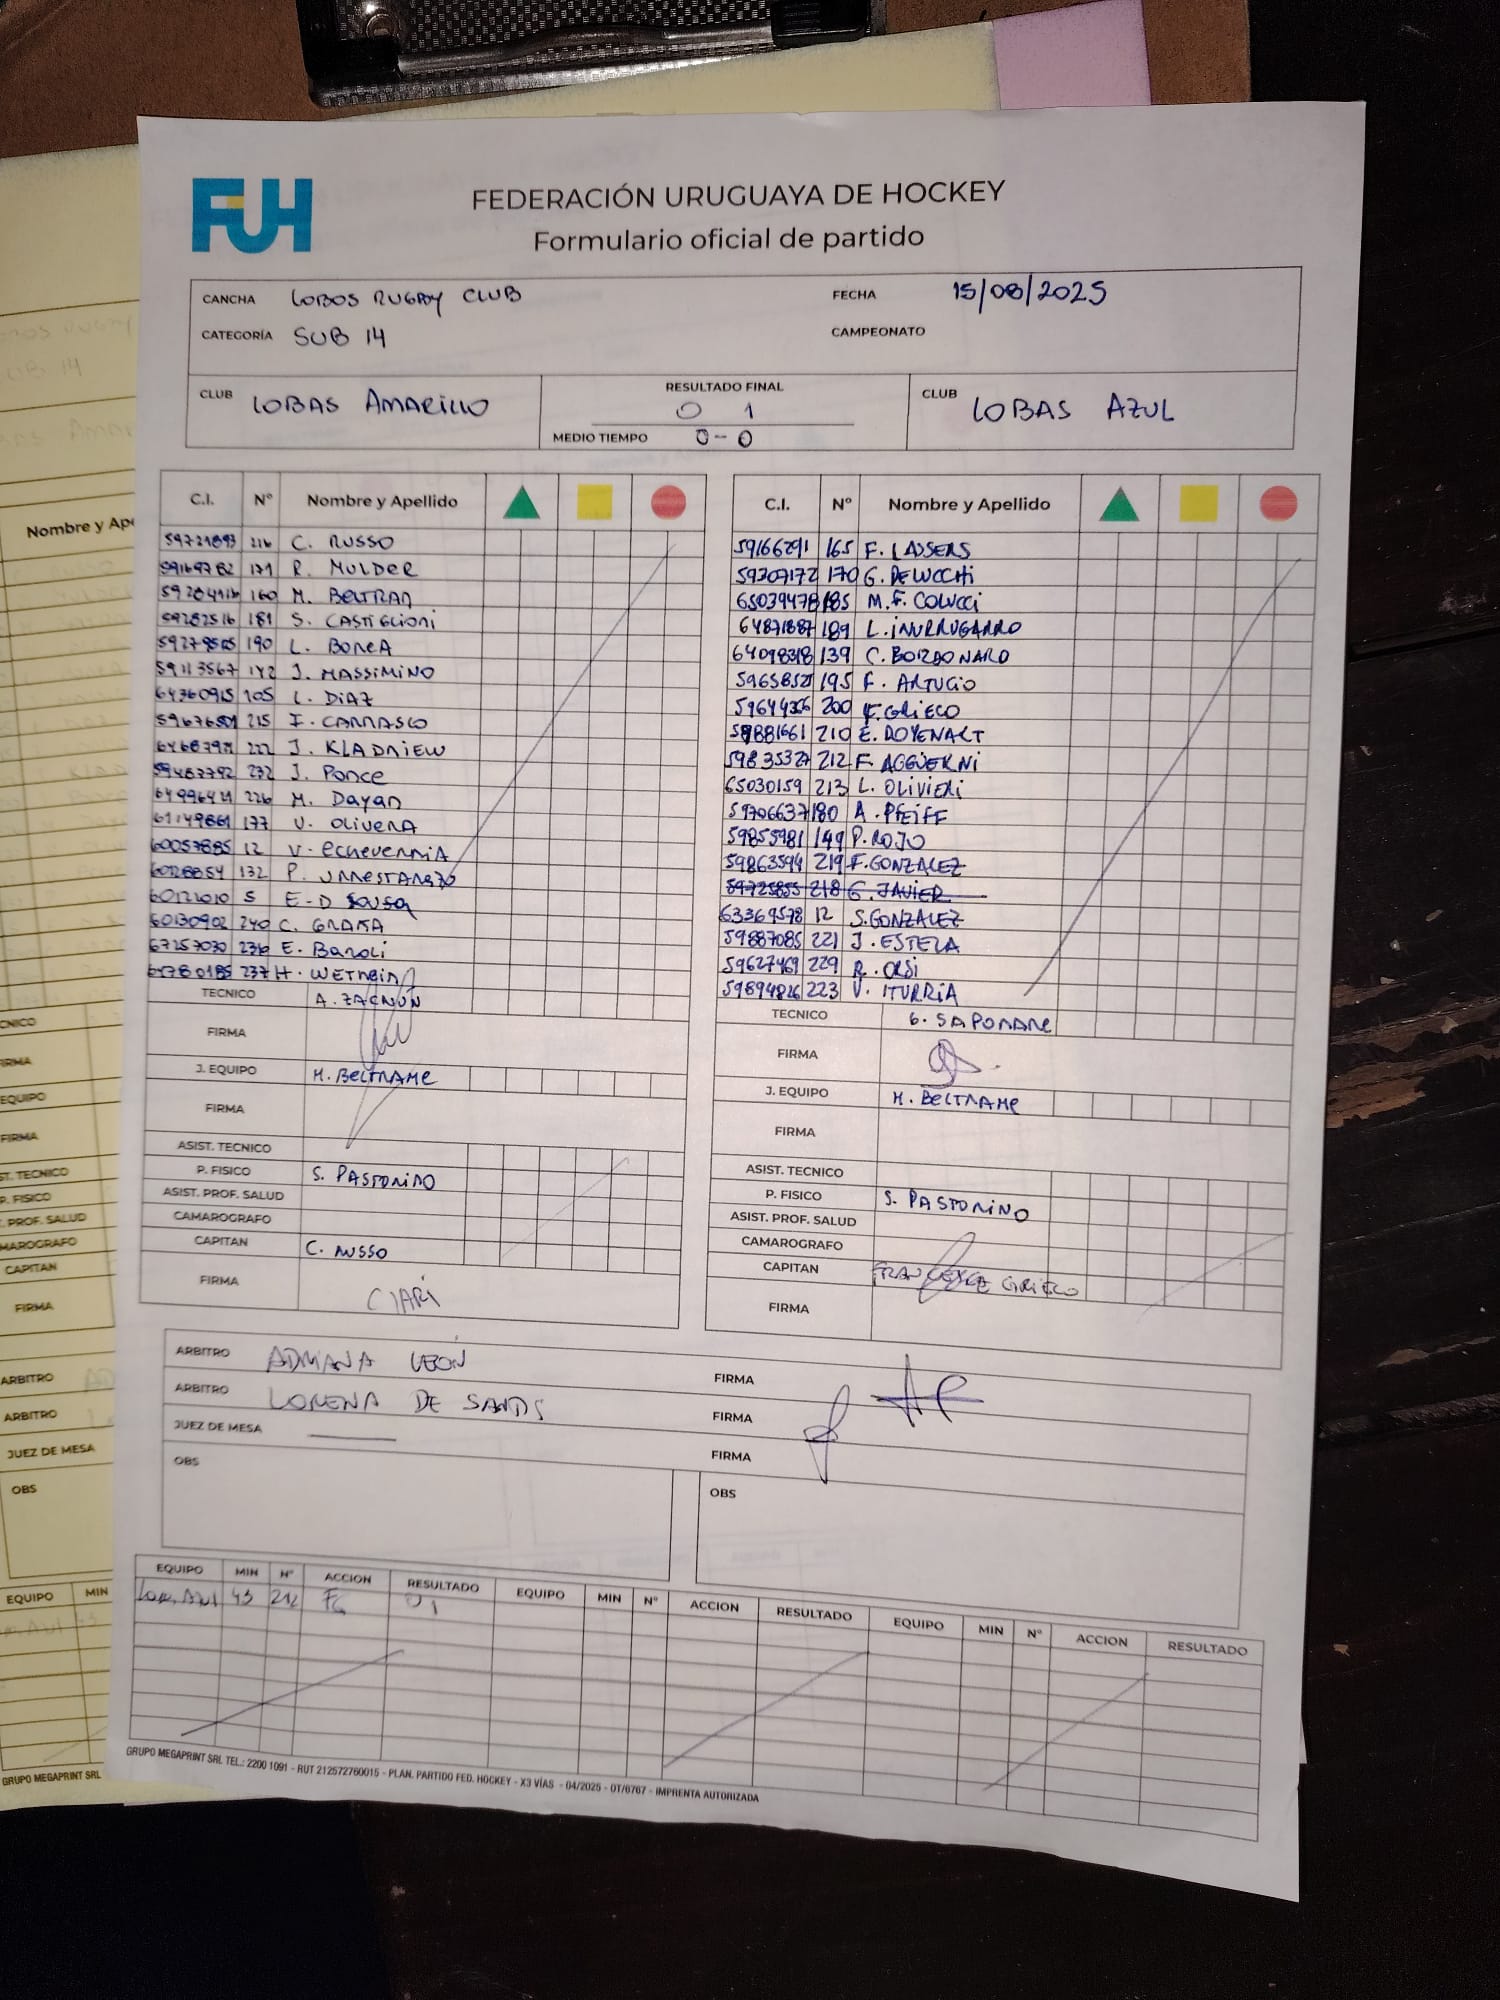 FUH
FEDERACIÓN URUGUAYA DE HOCKEY
Formulario oficial de partido
CANCHA LOBOS RUGBY CLUB FECHA 15/08/2025
CATEGORÍA SUB 14 CAMPEONATO
CLUB LOBAS AMARILLO RESULTADO FINAL 0 1 CLUB LOBAS AZUL
MEDIO TIEMPO 0-0
C.I. Nº Nombre y Apellido
216 C. RUSSO
171 R. MULDER
160 M. BELTRAN
59282516 181 S. CASTIGLIONI
190 L. BONEA
59113567 142 J. MASSIMINO
64360915 105 L. DIAZ
215 I. CARRASCO
222 J. KLADNIEW
59487792 232 J. PONCE
226 M. Dayan
61149861 177 V. OLIVERA
60057885 12 V. ECHEVERRIA
132 P. URRESTARAZO
60121010 5 E-D SOUSA
60130902 240 C. GRAÑA
67257030 236 E. Baroli
237 H.
TECNICO A. ZAGNUN
FIRMA
J. EQUIPO M. BELTRAME
FIRMA
ASIST. TECNICO
P. FISICO S. PASTORINO
ASIST. PROF. SALUD
CAMAROGRAFO
CAPITAN C. RUSSO
FIRMA CIARI
C.I. Nº Nombre y Apellido
59166291 165 F. LASSERS
59307172 170 G. DELUCCHI
65039478 185 M.F. COLUCCI
64871887 189 L. INURRUGARRO
64098318 139 C. BORDONARO
195 F. ARTUCIO
200 F. GRIECO
59881661 210 E. DOYENART
59835327 212 F. AGGUERNI
65030159 213 L. OLIVIERI
59706637 180 A. PFEIFF
59855981 149 P. ROJO
59863594 219 F. GONZALEZ
59725855 218 G. JAVIER
63369578 12 S. GONZALEZ
59887085 221 J. ESTELA
59627469 229 R. ORSI
59894826 223 V. ITURRIA
TECNICO G. SAPORARE
FIRMA
J. EQUIPO M. BELTRAME
FIRMA
ASIST. TECNICO
P. FISICO S. PASTORINO
ASIST. PROF. SALUD
CAMAROGRAFO
CAPITAN GRIECO
FIRMA
ARBITRO ADRIANA LEÓN FIRMA
ARBITRO LORENA DE SANTIS FIRMA
JUEZ DE MESA FIRMA
OBS OBS
EQUIPO MIN Nº ACCION RESULTADO EQUIPO MIN Nº ACCION RESULTADO EQUIPO MIN Nº ACCION RESULTADO
AZUL 43 212 FG 0 1
GRUPO MEGAPRINT SRL TEL.: 2200 1091 - RUT 212572760015 - PLAN. PARTIDO FED. HOCKEY - X3 VÍAS - 04/2025 - OT/6767 - IMPRENTA AUTORIZADA
Nombre y Ape
CNICO
IRMA
EQUIPO
FIRMA
ST. TECNICO
P. FISICO
PROF. SALUD
MAROGRAFO
CAPITAN
FIRMA
ARBITRO
ARBITRO
JUEZ DE MESA
OBS
EQUIPO MIN
GRUPO MEGAPRINT SRL